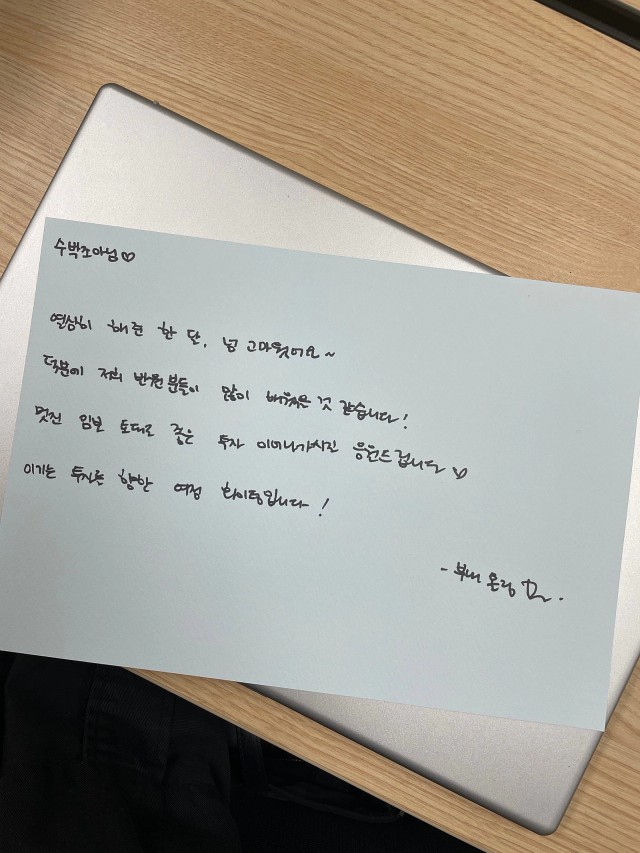 수박조아님♡
열심히 해준 한 달, 넘 고마웠어요~
덕분에 저희 반원분들이 많이 배웠을 것 같습니다!
멋진 임보 토대로 좋은 투자 이어나가시길 응원드립니다♡
이기는 투자를 향한 여정 화이팅입니다!
- 부내